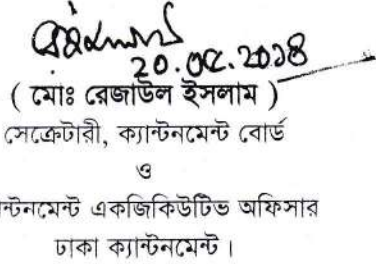 ২০.০৫.২০১৪
( মোঃ রেজাউল ইসলাম )
সেক্রেটারী, ক্যান্টনমেন্ট বোর্ড
ও
ন্টনমেন্ট একজিকিউটিভ অফিসার
ঢাকা ক্যান্টনমেন্ট ।